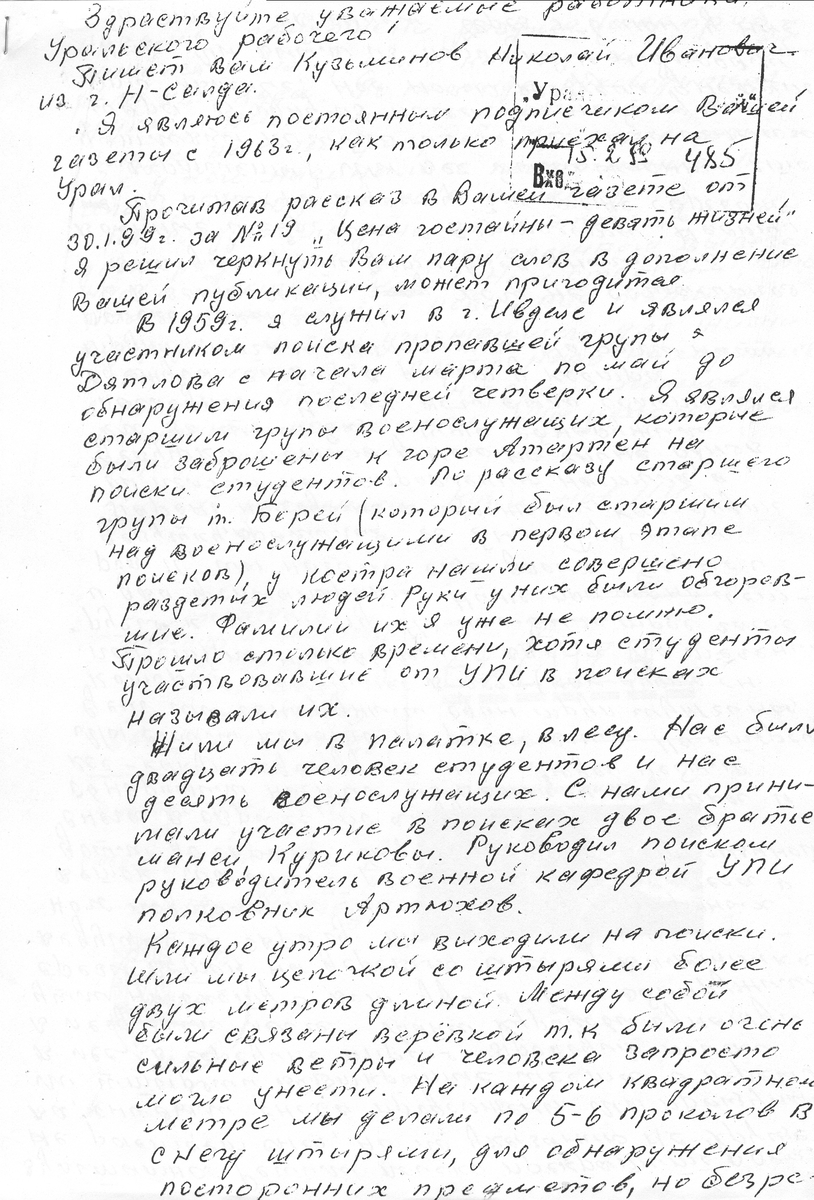 Здраствуйте уважаемые работники
Уральского рабочего!
Пишет Вам Кузьминов Николай Иванович
из г. Н-Салда.
Я являюсь постоянным подписчиком Вашей
газеты с 1963г., как только приехал на
Урал.
„Ура
15.2.99 485
Вхо
Прочитав рассказ в Вашей газете от
30.1.99г. за № 19 „Цена гостайны – девять жизней"
я решил черкнуть Вам пару слов в дополнение
Вашей публикации, может пригодится.
В 1959г. я служил в г. Ивделе и являлся
участником поиска пропавшей групы
Дятлова с начала марта по май до
обнаружения последней четверки. Я являлся
старшим групы военослужащих, которые
были заброшены к горе Атартен на
поиски студентов. По рассказу старшего
групы т. Борей (который был старшим
над военослужащими в первом этапе
поисков), у костра нашли совершено
раздетых людей. Руки у них были обгорев-
шие. Фамилии их я уже не помню.
Прошло столько времени, хотя студенты
участвовавшие от УПИ в поисках
называли их.
Жили мы в палатке, в лесу. Нас были
двадцать человек студентов и нас
десять военослужащих. С нами прини-
мали участие в поисках двое братье
манси Куриковы. Руководил поиском
руководитель военной кафедрой УПИ
полковник Артюхов.
Каждое утро мы выходили на поиски.
Шли мы цепочкой со штырями более
двух метров длиной. Между собой
были связаны верёвкой т.к были очень
сильные ветры и человека запросто
могло унести. На каждом квадратном
метре мы делали по 5-6 проколов в
снегу штырями, для обнаружения
посторонних предметов, но безре-